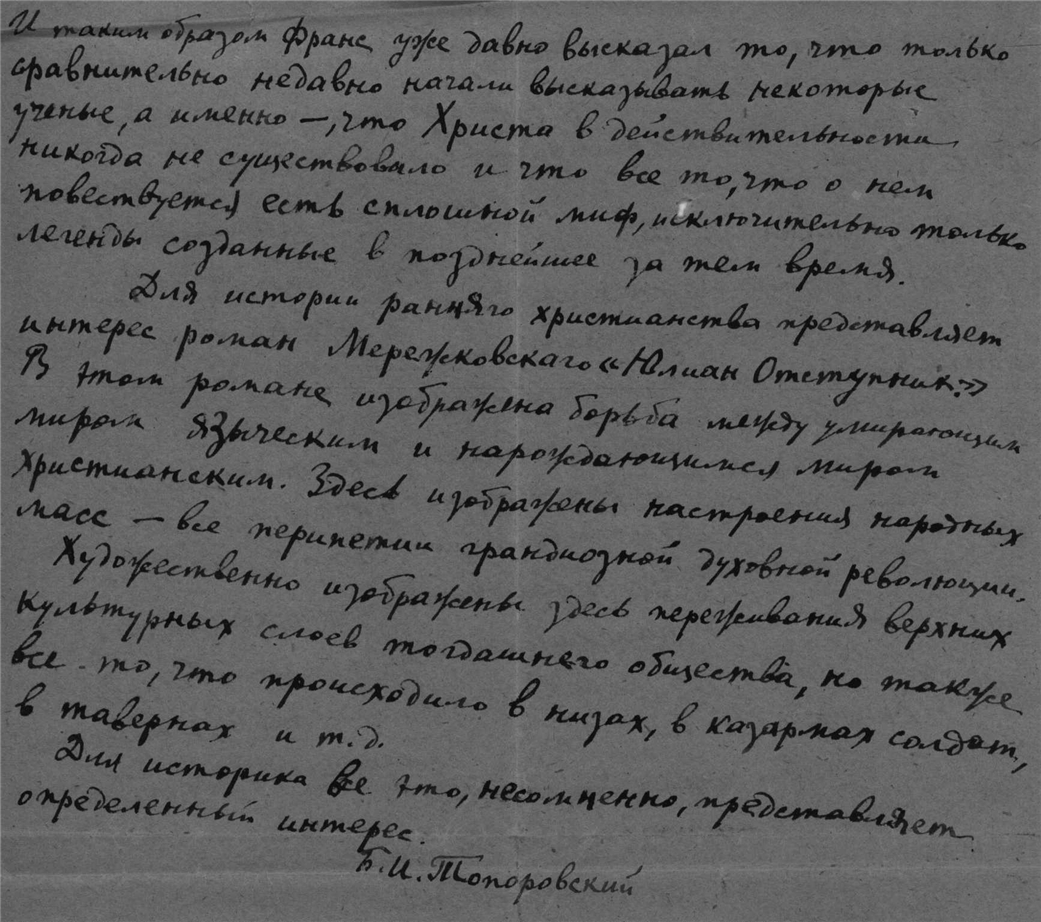 И таким образом Франс уже давно высказал то, что только
сравнительно недавно начали высказывать некоторые
ученые, а именно —, что Христа в действительности
никогда не существовало и что все то, что о нем
повествуется есть сплошной миф, исключительно только
легенды созданные в позднейшее за тем время.
Для истории раннего христианства представляет
интерес роман Мережковскаго «Юлиан Отступник»
В этом романе изображена борьба между умирающим
миром языческим и нарождающимся миром
христианским. Здесь изображены настроения народных
масс — все перипетии грандиозной духовной революции.
Художественно изображены здесь переживания верхних
культурных слоев тогдашнего общества, но также
все то, что происходило в низах, в казармах солдат,
в тавернах и т.д.
Для историка все это, несомненно, представляет
определенный интерес.
Б.И. Топоровский